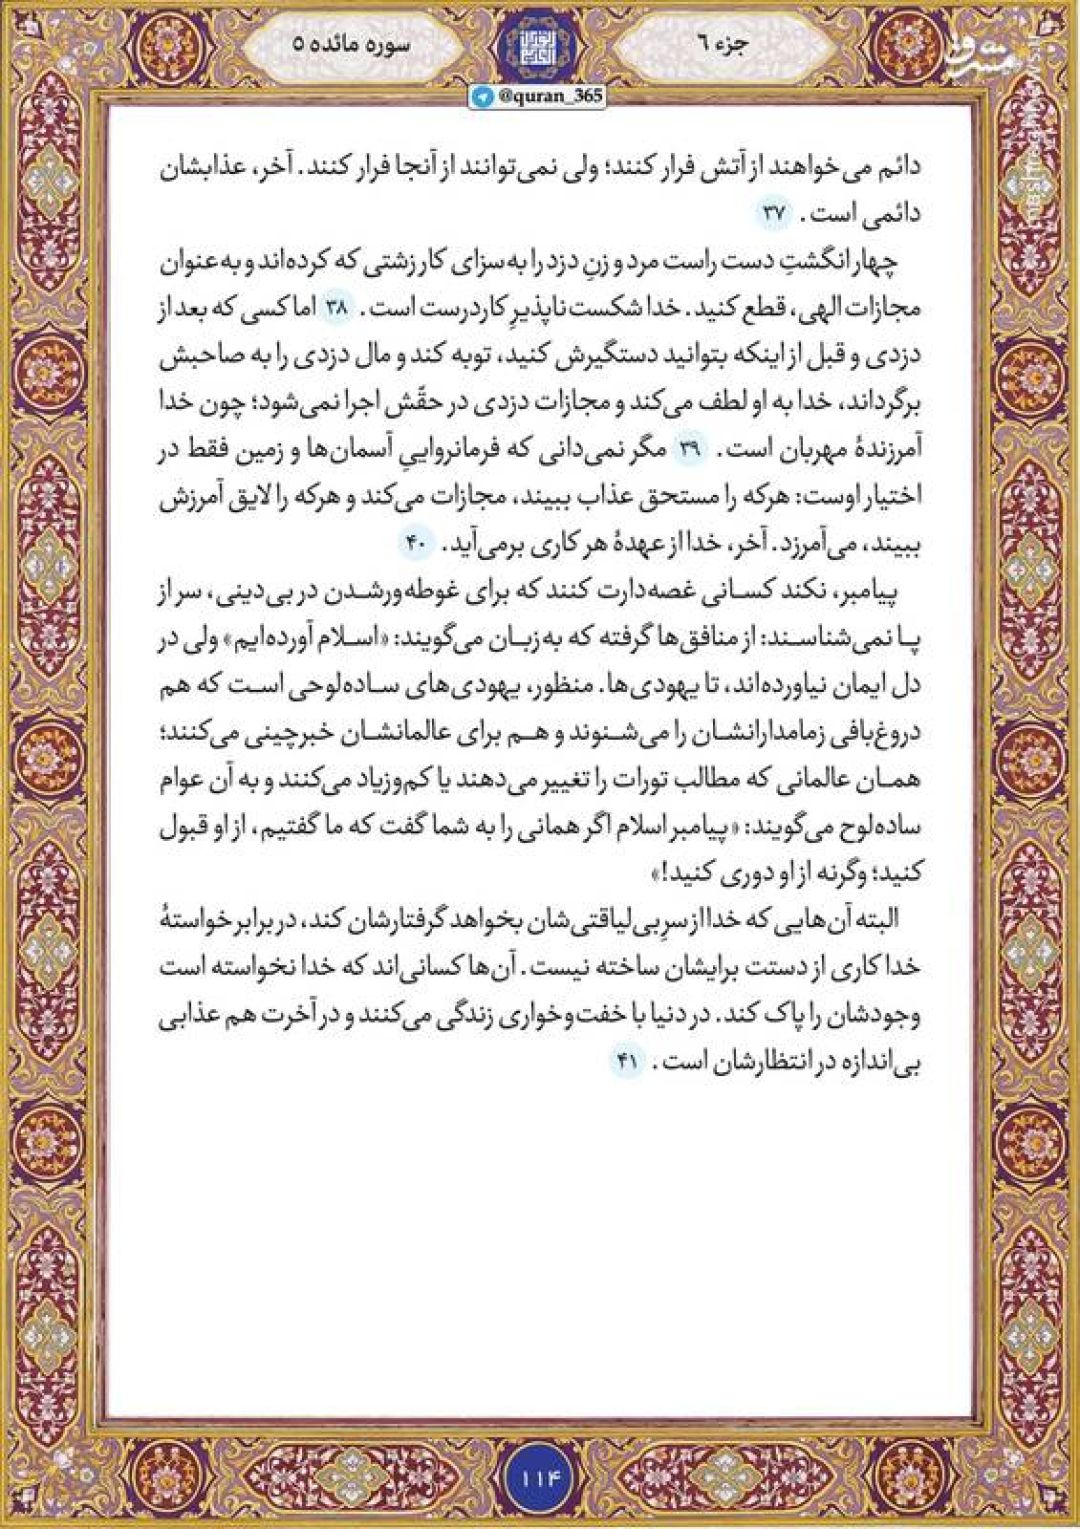 جزء ۶
سوره مائده ۵
مشرق
@quran_365
دائم می‌خواهند از آتش فرار کنند؛ ولی نمی‌توانند از آنجا فرار کنند. آخر، عذابشان
دائمی است. ۳۷
چهار انگشتِ دست راست مرد و زنِ دزد را به‌سزای کار زشتی که کرده‌اند و به‌عنوان
مجازات الهی، قطع کنید. خدا شکست‌ناپذیرِ کاردرست است. ۳۸ اما کسی که بعد از
دزدی و قبل از اینکه بتوانید دستگیرش کنید، توبه کند و مال دزدی را به صاحبش
برگرداند، خدا به او لطف می‌کند و مجازات دزدی در حقّش اجرا نمی‌شود؛ چون خدا
آمرزندهٔ مهربان است. ۳۹ مگر نمی‌دانی که فرمانرواییِ آسمان‌ها و زمین فقط در
اختیار اوست: هرکه را مستحق عذاب ببیند، مجازات می‌کند و هرکه را لایق آمرزش
ببیند، می‌آمرزد. آخر، خدا از عهدهٔ هر کاری برمی‌آید. ۴۰
پیامبر، نکند کسانی غصه‌دارت کنند که برای غوطه‌ورشدن در بی‌دینی، سر از
پا نمی‌شناسند: از منافق‌ها گرفته که به‌زبان می‌گویند: «اسلام آورده‌ایم» ولی در
دل ایمان نیاورده‌اند، تا یهودی‌ها. منظور، یهودی‌های ساده‌لوحی است که هم
دروغ‌بافی زمامدارانشان را می‌شنوند و هم برای عالمانشان خبرچینی می‌کنند؛
همان عالمانی که مطالب تورات را تغییر می‌دهند یا کم‌وزیاد می‌کنند و به آن عوام
ساده‌لوح می‌گویند: «پیامبر اسلام اگر همانی را به شما گفت که ما گفتیم، از او قبول
کنید؛ وگرنه از او دوری کنید!»
البته آن‌هایی که خدا از سرِ بی‌لیاقتی‌شان بخواهد گرفتارشان کند، در برابر خواستهٔ
خدا کاری از دستت برایشان ساخته نیست. آن‌ها کسانی‌اند که خدا نخواسته است
وجودشان را پاک کند. در دنیا با خفت‌وخواری زندگی می‌کنند و در آخرت هم عذابی
بی‌اندازه در انتظارشان است. ۴۱
۱۱۴